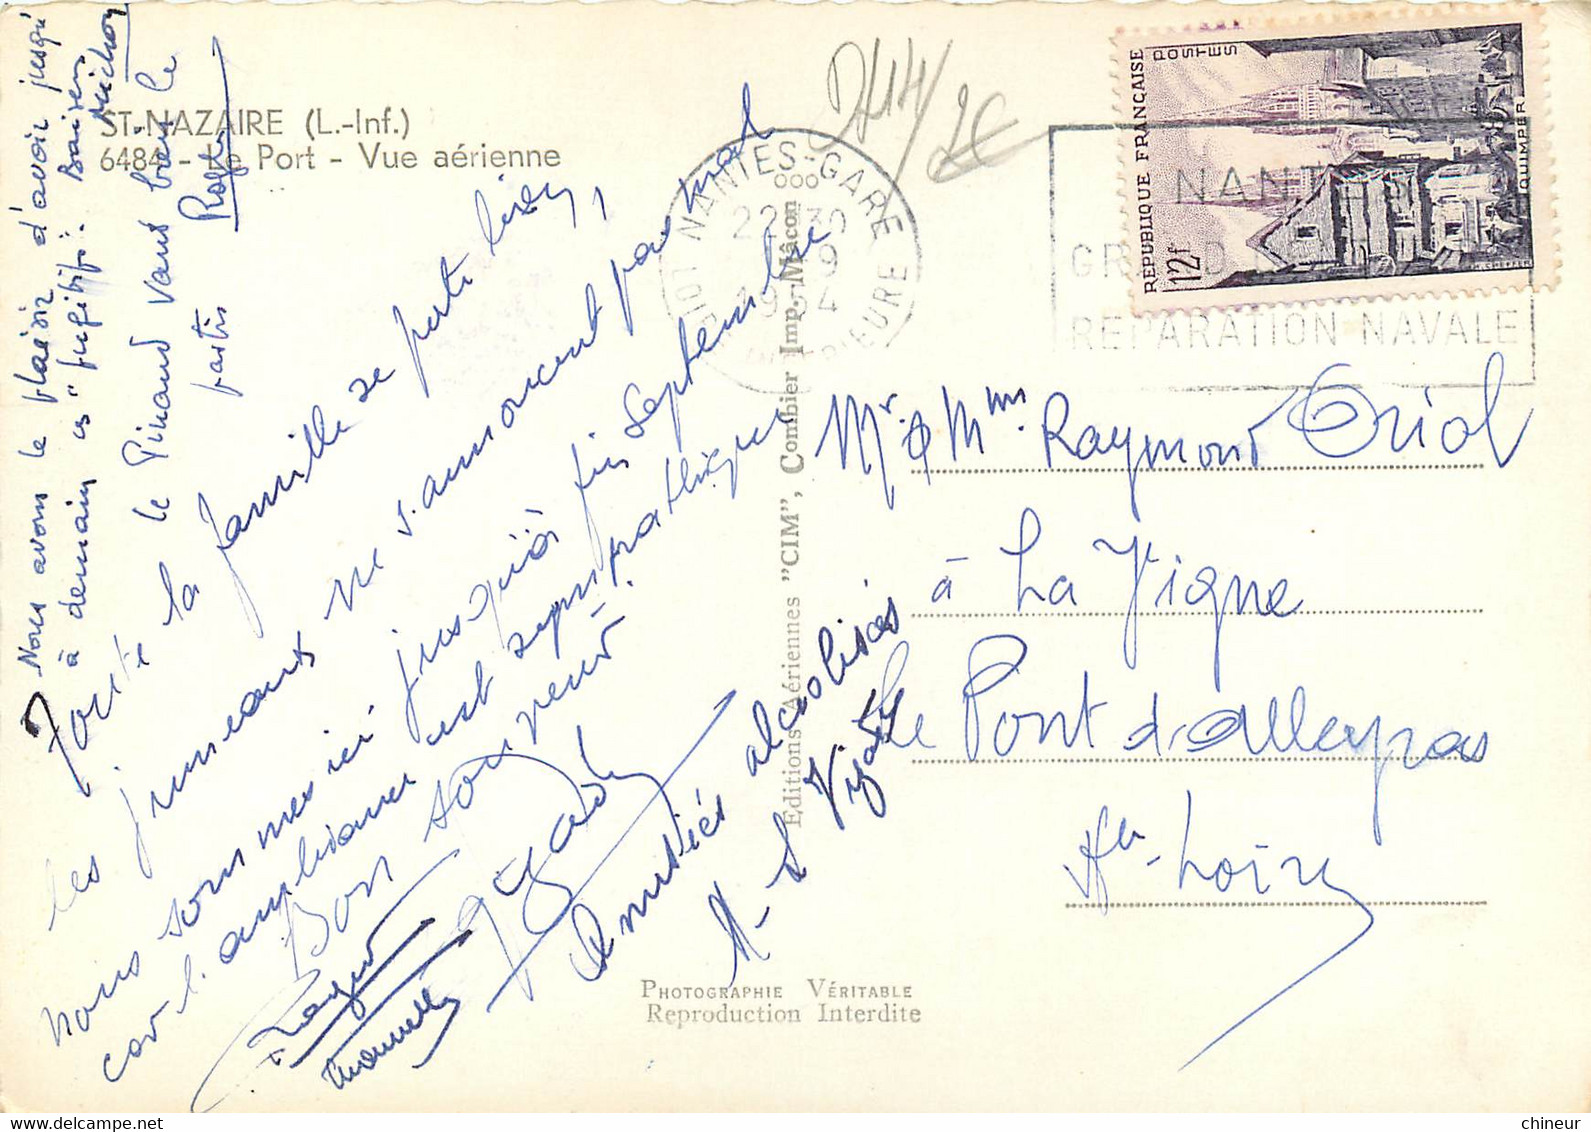 ST-NAZAIRE (L.-Inf.)
6484 - Le Port - Vue aérienne
Nous avons le plaisir d'avoir jusqu'
à demain les "fugitifs". Baisers
Michou
le Pinaud vous baise le
partis
Toute la famille se porte bien,
les jumeaux ne s'annoncent pas mal
nous sommes ici jusqu'à fin Septembre
car l'ambiance est sympathique
Bon souvenir
Amitiés alcoolisées
Editions Aériennes "CIM", Combier Imp. Mâcon
NANTES-GARE
LOIRE INFERIEURE
22 30
9
1954
NANTES
GRAND
REPARATION NAVALE
REPUBLIQUE FRANÇAISE
POSTES
12f
QUIMPER
2€
Mr & Mme Raymond Oriol
à La Vigne
Le Pont d'Alleyras
Hte-Loire
PHOTOGRAPHIE VÉRITABLE
Reproduction Interdite
chineur